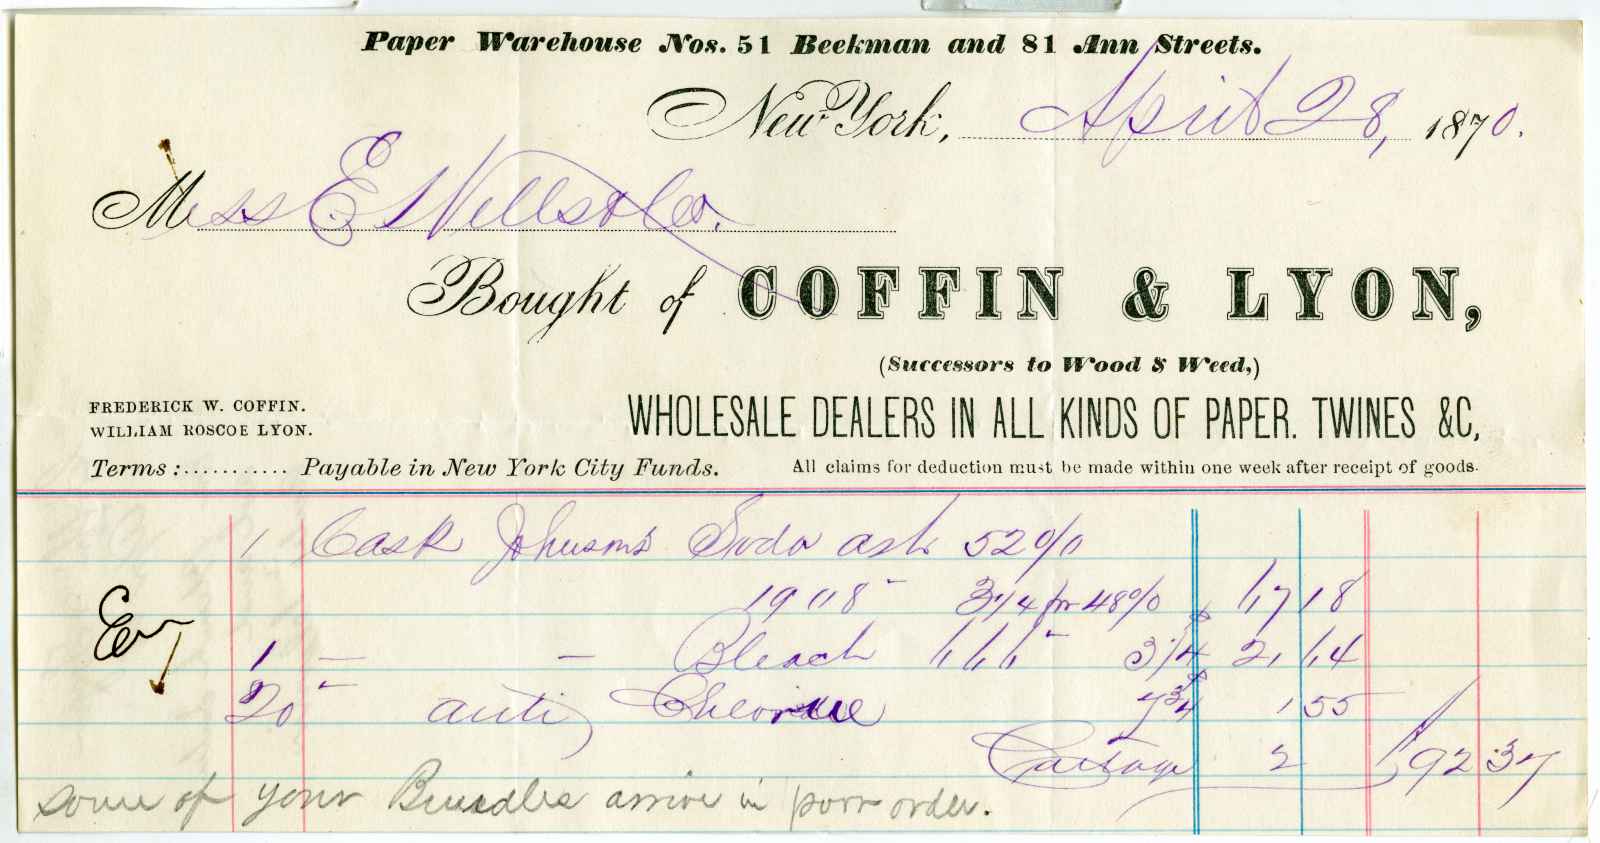 Paper Warehouse Nos. 51 Beekman and 81 Ann Streets.
New-York, April 28, 1870.
Mess E Wells & Co.
Bought of COFFIN & LYON,
(Successors to Wood & Weed,)
FREDERICK W. COFFIN.
WILLIAM ROSCOE LYON.
WHOLESALE DEALERS IN ALL KINDS OF PAPER. TWINES &C,
Terms:........... Payable in New York City Funds.
All claims for deduction must be made within one week after receipt of goods.
1 Cask Johnson's Soda ash 52%
3 1/4 for 48%
1 — — Bleach 3 1/4 14
20 " anti Chlorine 7 3/4 1 55
Cartage 2 92 37
some of your Bundles arrive in poor order.